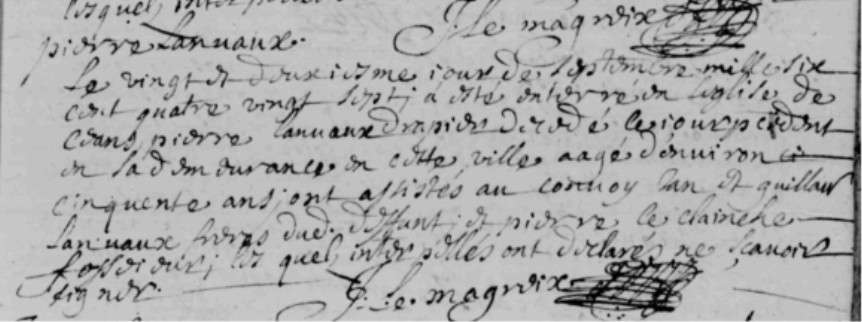 lesquels interpellés
J. Le magreix
pierre Lanvaux.
Le vingt et deuxiesme jour de septembre mille six
cent quatre vingt sept, a esté enterré en l'eglise de
ceans, pierre Lanvaux drapier decedé le jour precedent
en sa demeurance en cette ville aagé d'environ
cinquente ans, ont assistés au convoy Jan et guillau
Lanvaux freres dud. deffunt, et pierre le clainche
fosseieur, lesquels interpellés ont declarés ne scavoir
signer.
J. Le magreix